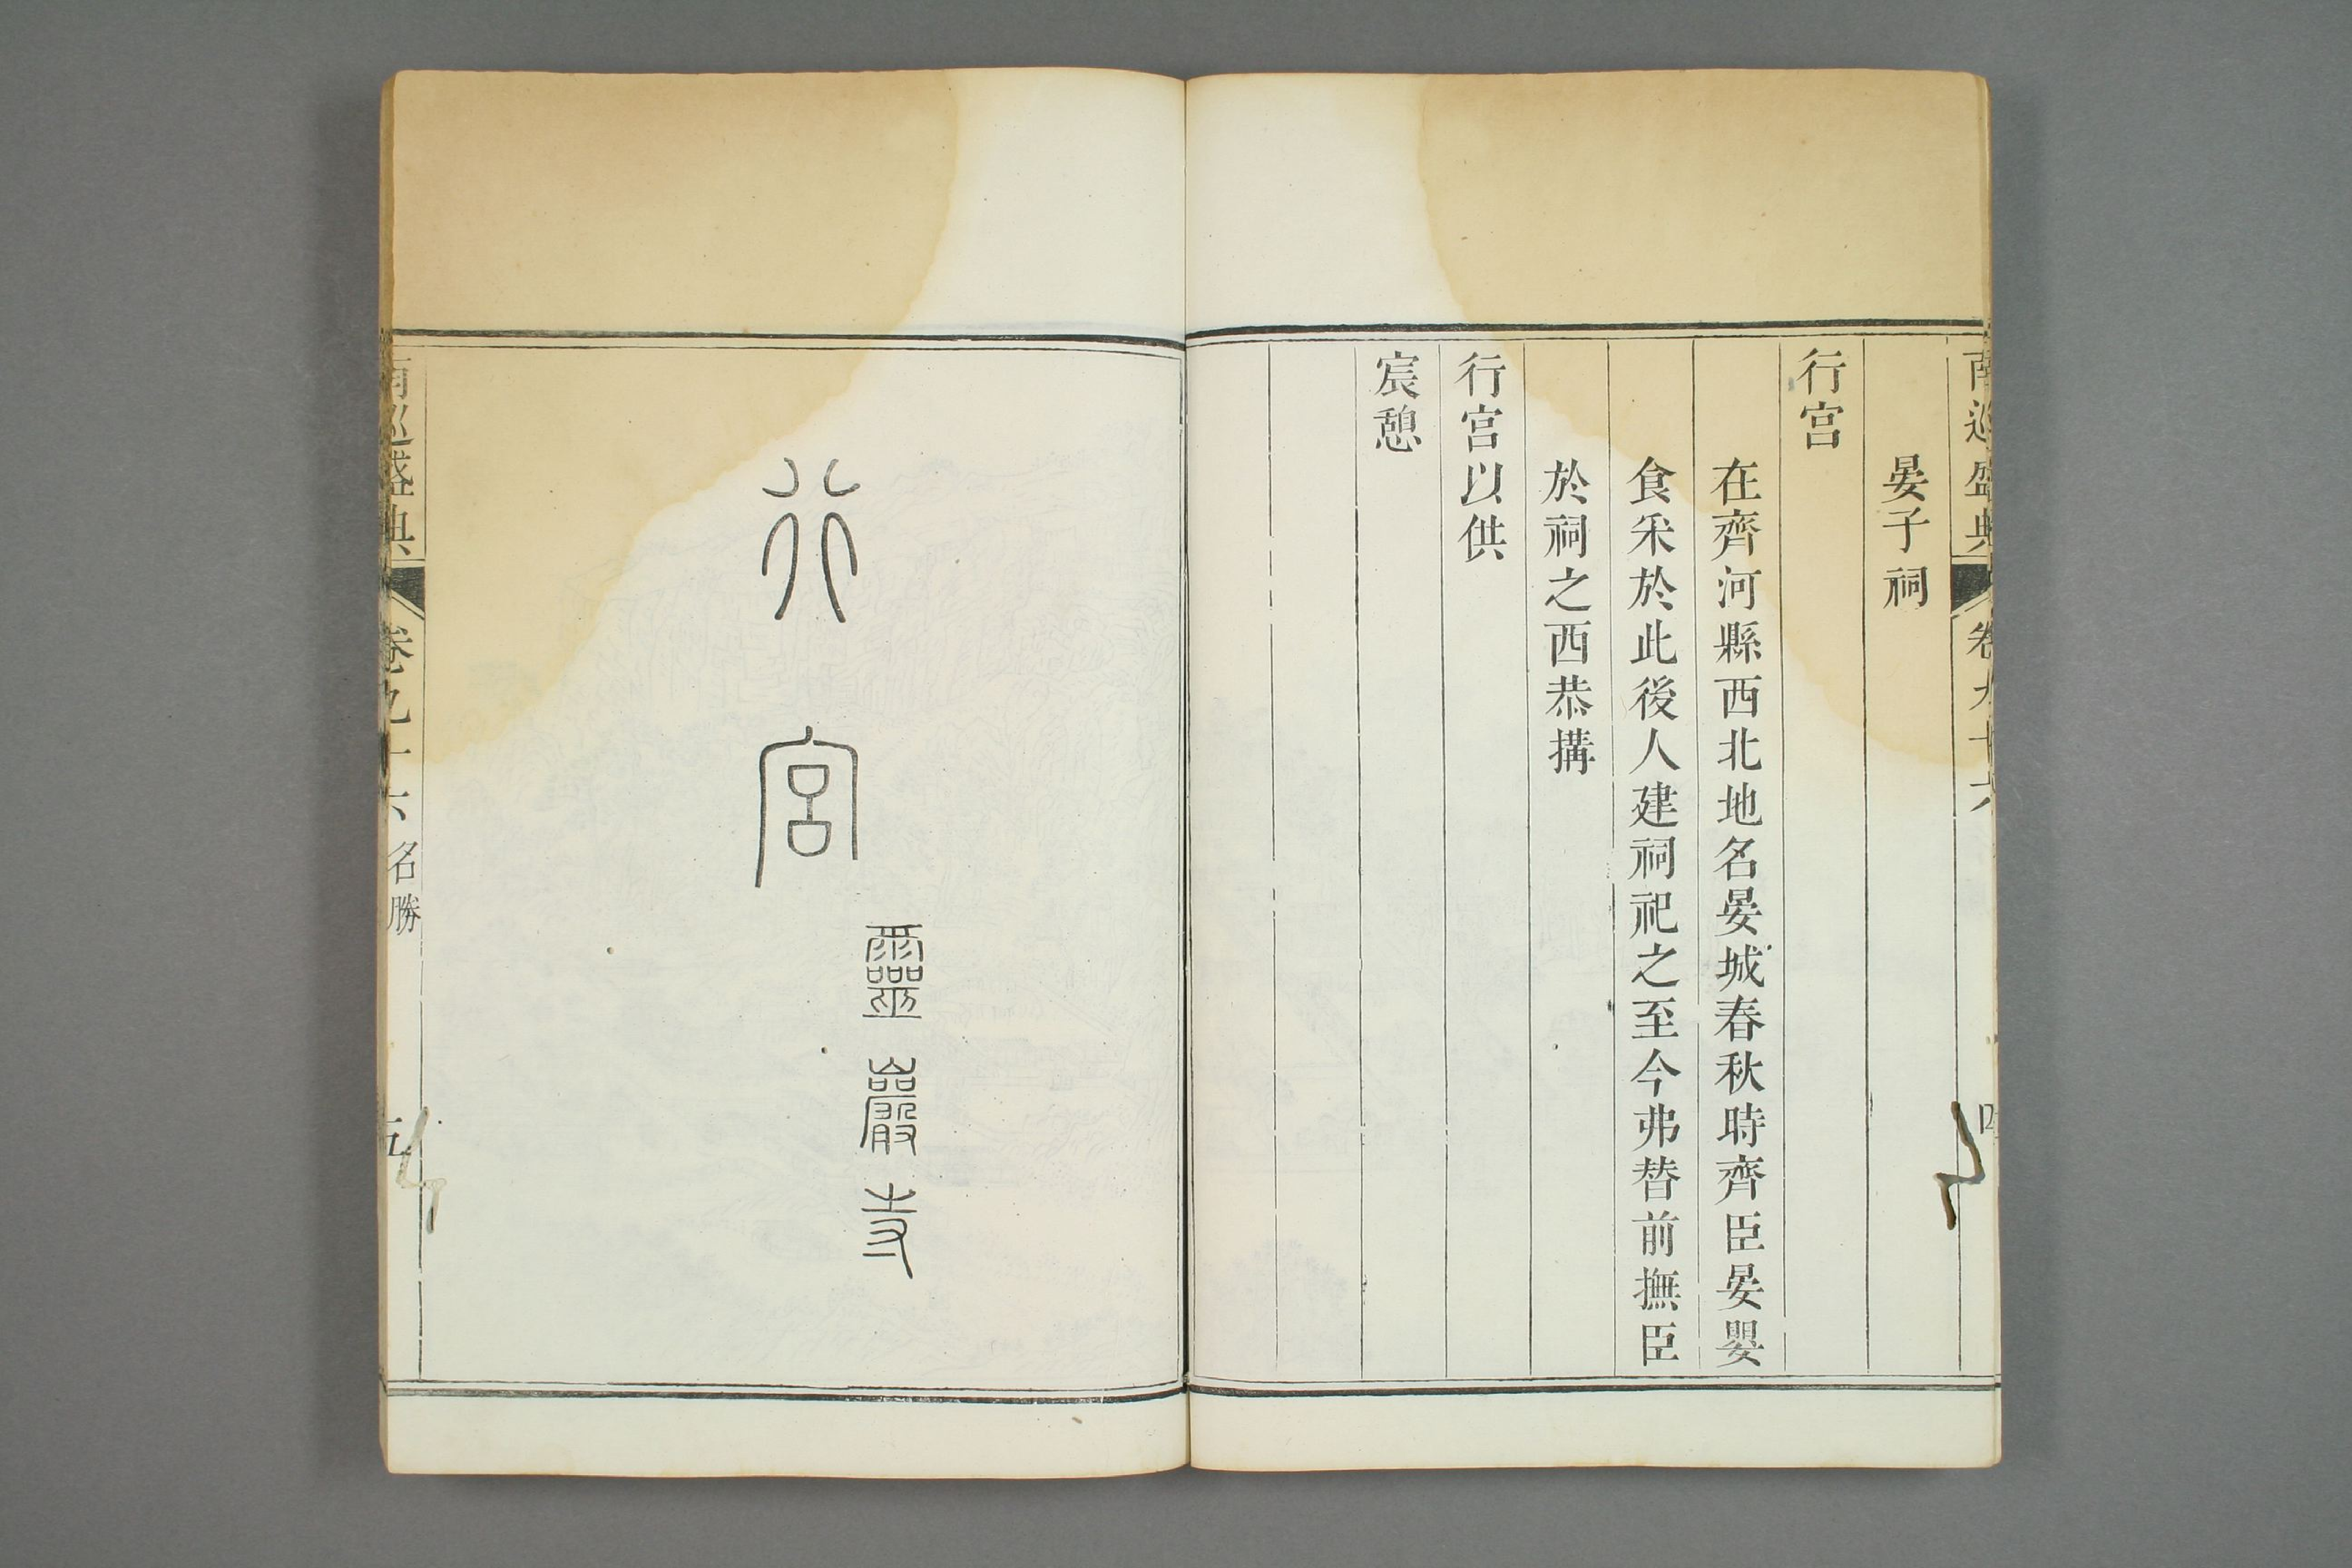 南巡盛典 卷九十六 四
晏子祠
行宮
在齊河縣西北地名晏城春秋時齊臣晏嬰
食采於此後人建祠祀之至今弗替前撫臣
於祠之西恭搆
行宮以供
宸憩
行宮
靈巖寺
南巡盛典 卷九十六 名勝 五